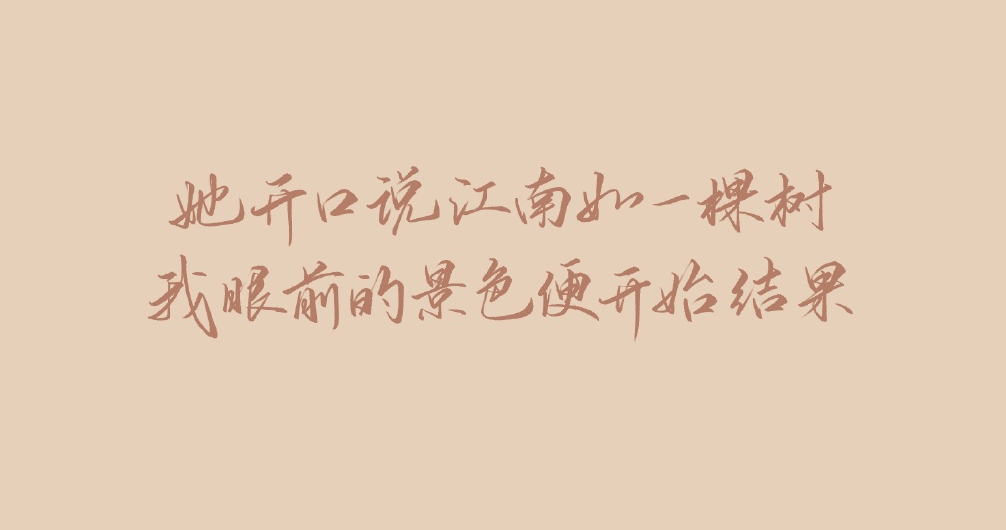 她开口说江南如一棵树
我眼前的景色便开始结果